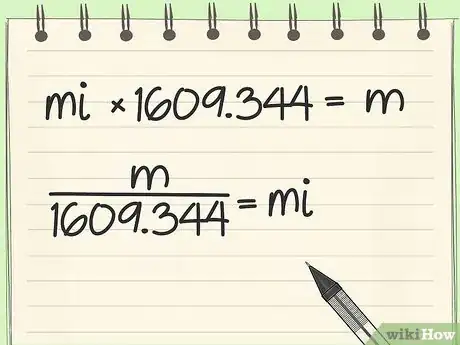 mi × 1609.344 = m
m
1609.344 = mi
wikiHow